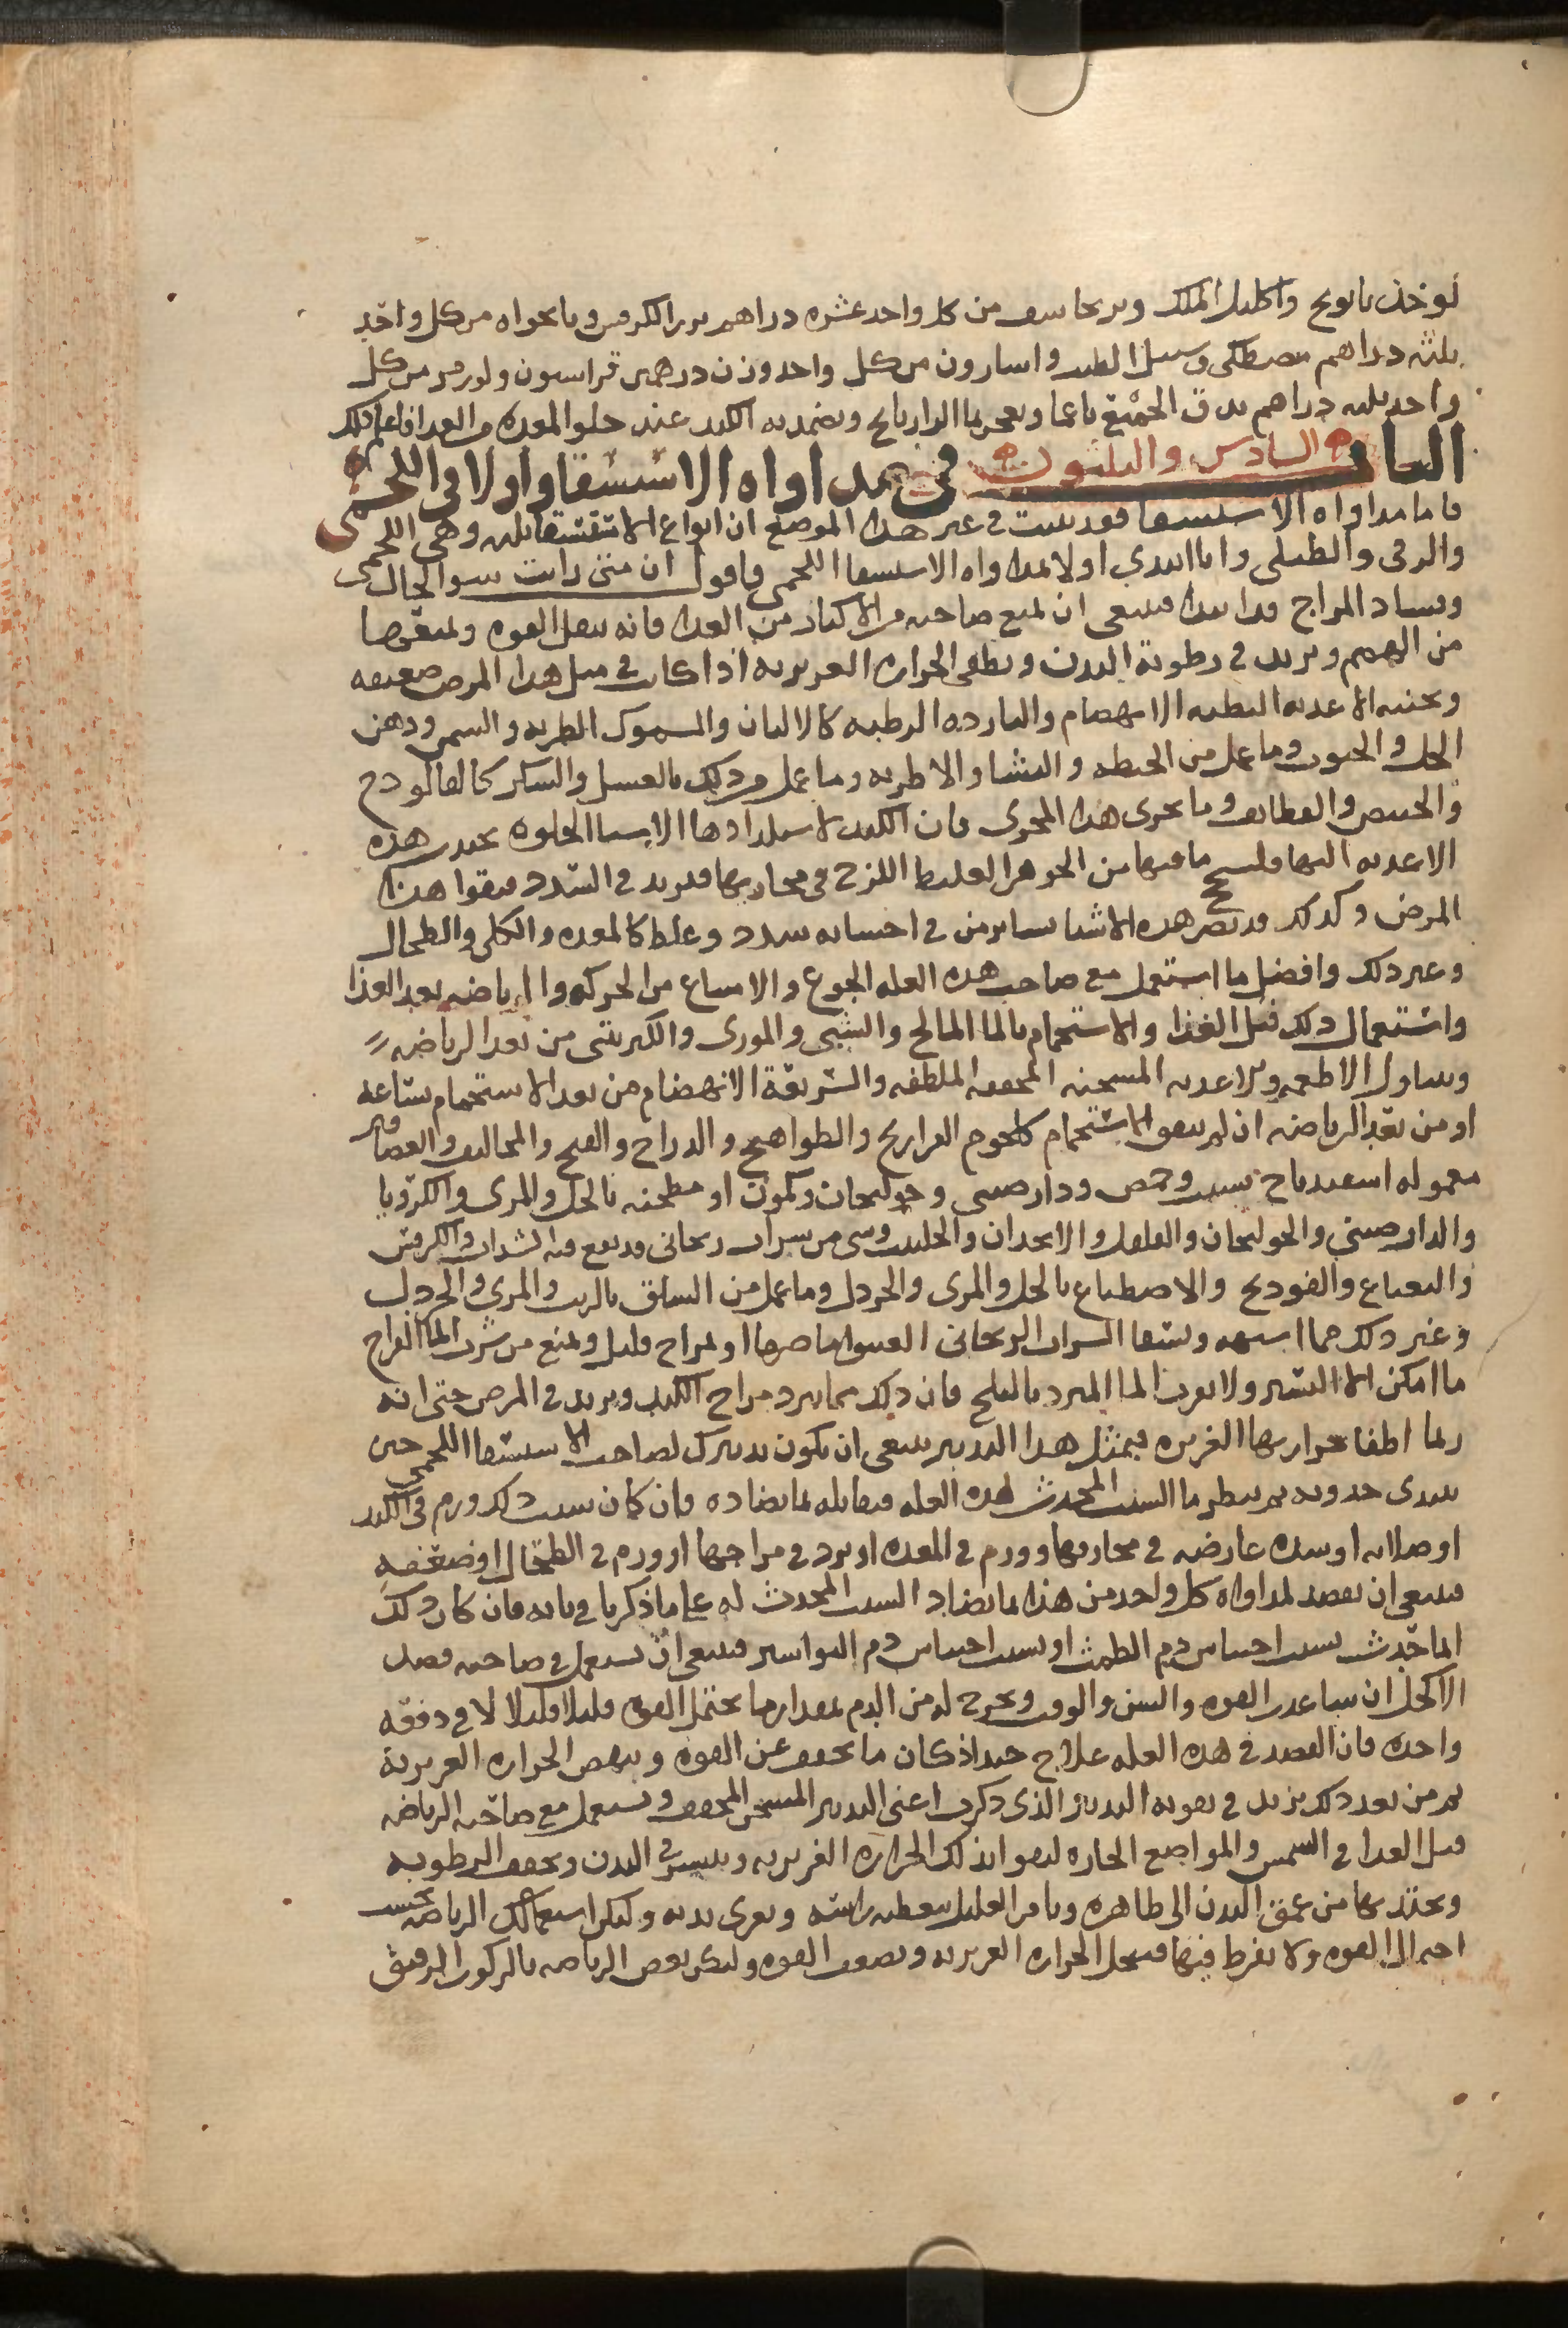 يوخذ بابونج واكليل الملك وبرنجاسف من كل واحد عشره دراهم بزر الكرفس ونانخواه من كل واحد
ثلثه دراهم مصطكى وسنبل الطيب واسارون من كل واحد وزن درهمين فراسيون ولوز مر من كل
واحد ثلثه دراهم يدق الجميع ناعما ويعجن بما الرازيانج ويضمد به الكبد عند خلو المعده من الغدا فاعلم ذلك
الباب السادس والثلثون في مداواه الاستسقا واولا في اللحمي
فاما مداواه الاستسقا فقد بينت في غير هذا الموضع ان انواع الاستسقا ثلثه وهي اللحمي
والزقي والطبلي وانا ابتدي اولا بمداواه الاستسقا اللحمي فاقول ان متى رايت سو الحال
وفساد المزاج قد ابتدا فينبغي ان تمنع صاحبه من الاكثار من الغدا فانه يثقل القوه ويمنعها
من الهضم ويزيد في رطوبة البدن ويطفي الحراره الغريزيه اذا كانت في مثل هذا المرض ضعيفه
ويجنبه الاغديه البطيه الانهضام والبارده الرطبه كالالبان والسموك الطريه والسمن ودهن
الحل والحبوب وما عمل من الحنطه والنشا والاطريه وما عمل من ذلك بالعسل والسكر كالفالودج
والخبيص والقطايف وما يجرى هذا المجرى فان الكبد لاستلدادها الاشيا الحلوه تجدب هذه
الاغديه اليها فيلحج ما فيها من الجوهر الغليظ اللزج في مجاريها فيزيد في السدد فيقوا هذا
المرض وكذلك قد تضر هذه الاشيا بساير من في احشايه سدد وغلظ كالمعده والكلى والطحال
وغير ذلك وافضل ما استعمل مع صاحب هذه العله الجوع والامتناع من الحركه والرياضه بعد الغذا
واستعمال ذلك قبل الغذا والاستحمام بالما المالح والشبى والبورى والكبريتى من بعد الرياضه
وتناول الاطعمه والاغديه المسخنه المجففه الملطفه والسريعة الانهضام من بعد الاستحمام بساعه
او من بعد الرياضه ان لم يتفق الاستحمام كلحوم الفراريج والطواهيج والدراج والقبج والمخاليف والعصافير
معموله اسفيدباج بشبت وحمص ودارصيني وخولنجان وكمون او مطجنه بالخل والمرى والكرويا
والدارصيني والخولنجان والفلفل والانجدان والحلتيت وشى من شراب ريحاني قد نقع فيه السذاب والكرفس
والنعناع والفودنج والاصطباغ بالخل والمرى والخردل وما عمل من السلق بالزيت والمرى والخردل
وغير ذلك مما اشبهه ويسقا الشراب الريحاني العتيق اما صرفا او بمزاج قليل ويمنع من شرب الما القراح
ما امكن الا اليسير ولا يقرب الما المبرد بالثلج فان ذلك مما يبرد مزاج الكبد ويزيد في المرض حتى انه
ربما اطفا حرارتها الغريزه فبمثل هذا التدبير ينبغي ان يكون تدبيرك لصاحب الاستسقا اللحمي حين
يبتدى حدوثه ثم ينظر ما السبب المحدث لهذه العله فيقابله بما يضاده فان كان سبب ذلك ورم في الكبد
او صلابه او سده عارضه في مجاريها وورم في المعده او برد في مزاجها او ورم في الطحال او ضعفه
فينبغي ان يقصد لمداواه كل واحد من هذا بما يضاد السبب المحدث له على ما ذكرنا في بابه فان كان ذلك
انما حدث بسبب احتباس دم الطمث او بسبب احتباس دم البواسير فينبغي ان يستعمل في صاحبه فصد
الاكحل ان ساعدت القوه والسن والوقت ويخرج له من الدم بمقدار ما تحتمل القوه قليلا قليلا لا في دفعه
واحده فان الفصد في هذه العله علاج جيد اذ كان ما يخفف عن القوه وينهض الحراره الغريزية
ثم من بعد ذلك يزيد في تقويه التدبير الذى ذكرت اعنى التدبير المسخن المجفف ويستعمل مع صاحبه الرياضه
قبل الغدا في الشمس والمواضع الحاره ليقوا بذلك الحراره الغريزيه وينتشر في البدن ويجفف الرطوبه
ويجتذبها من عمق البدن الى ظاهره ويامر العليل بتغطيه راسه ويعرى بدنه وليكن استعمالك الرياضه بحسب
احتمال القوه ولا يفرط فيها فيتحلل الحراره الغريزيه ويضعف القوه وليكن بعض الرياضه بالركوب الرفيق